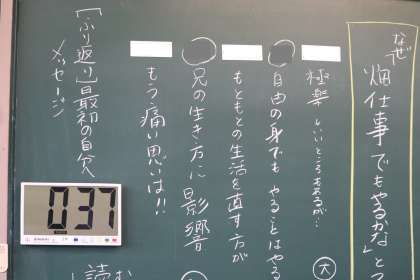 なぜ「畑仕事でもやるかな」と
極楽 しいところもあるが…
大
自由の身でも やることはやる
もともとの生活を直す方が
兄の生き方に影響
もう痛い思いは!!
「ふり返り」最初の自分へ
メッセージ
読む
037